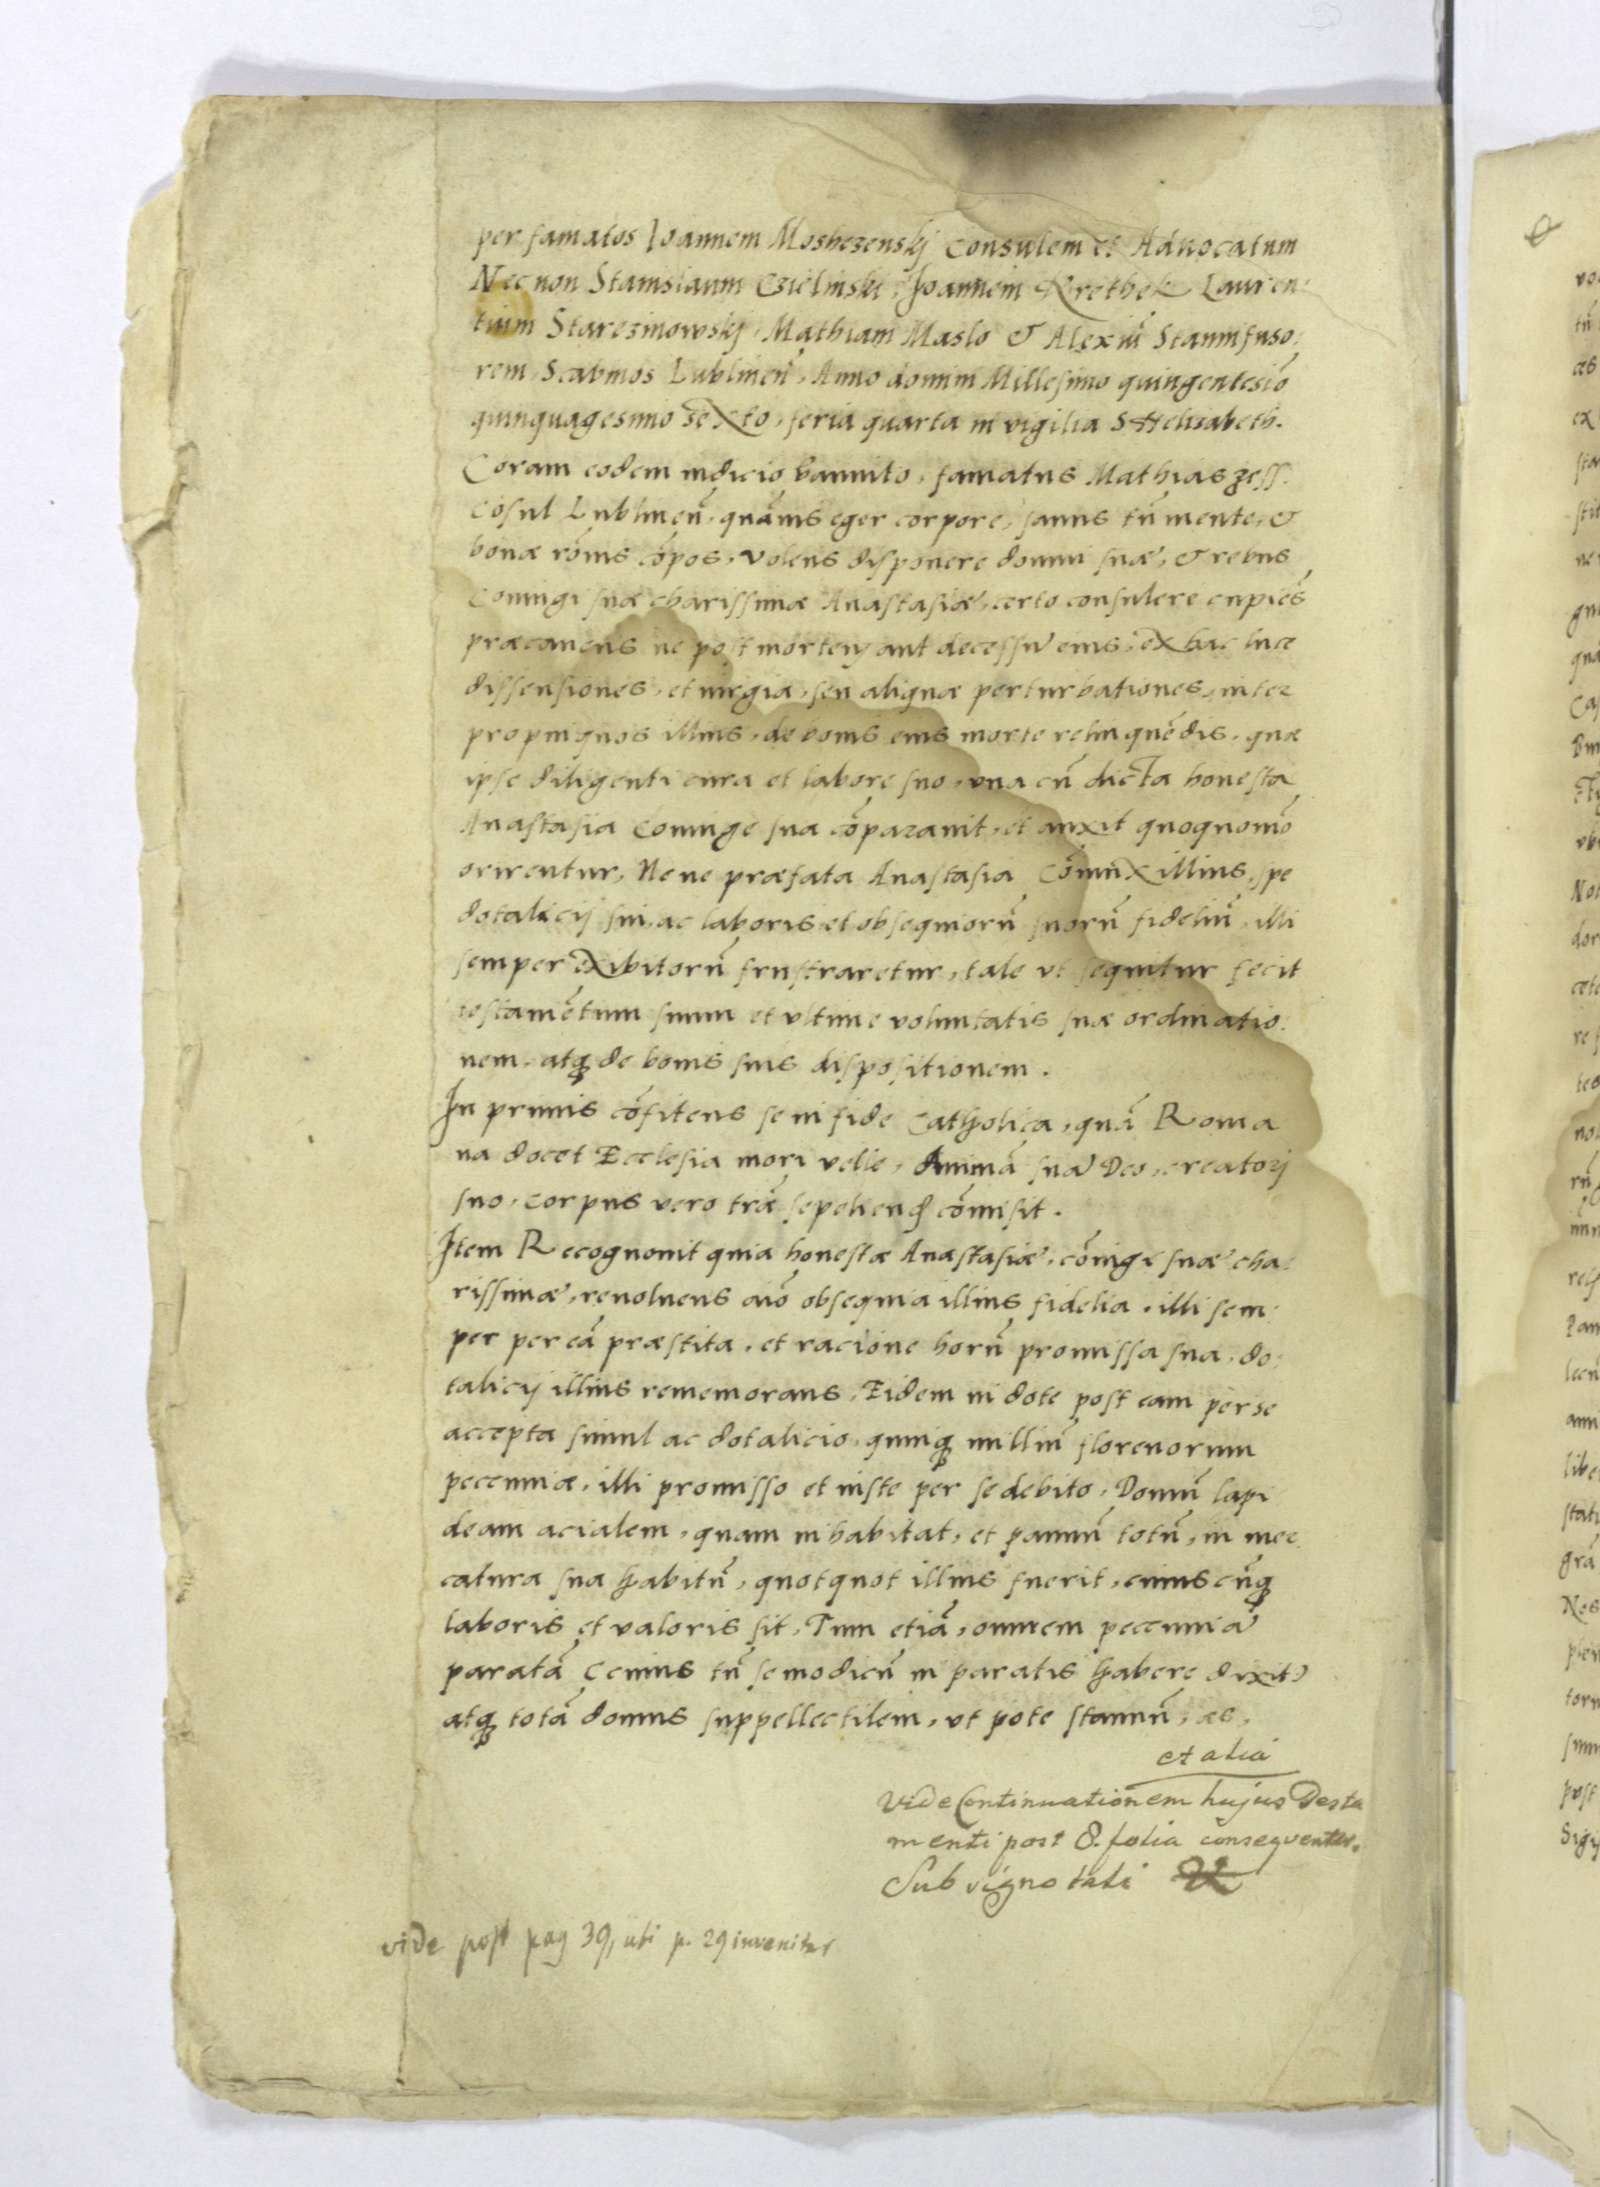 per famatos Joannem Moshczenskj Consulem et Aduocatum
Nec non Stanislaum Czielinski, Joannem Krethek Lauren:
tium Starczinowskj, Mathiam Maslo & Alexiū Stannifuso:
rem, Scabinos Lublineñ, Anno domini Millesimo quingentesiō
quinquagesimo sexto, feria quarta in vigilia S Helisabeth.
Coram eodem iudicio bannito, famatus Mathias
Cōsul Lublineñ, quāuis eger corpore, sanus tñ mente, &
bonæ rōnis cōpos, volens disponere domui suæ, & rebus
Coniugi suæ charissimæ Anastasiæ, certo consulere cupiēs
præcauens ne post mortem aut decessū eius, ex hac luce
dissensiones, et iurgia, seu aliquæ perturbationes, inter
propinquos illius, de bonis eius morte relinquēdis, quæ
ipse diligenti cura et labore suo, vna cū dicta honesta
Anastasia Coniuge sua cōparauit, et auxit quoquomō
orirentur, Neue præfata Anastasia Cōiunx illius, spe
dotalicij sui, ac laboris et obsequiorū suorū fideliū, illi
semper exibitorū frustraretur, tale vt sequitur fecit
testamētum suum et vltime voluntatis suæ ordinatio:
nem, atq de bonis suis dispositionem.
In primis cōfitens se in fide Catholica, quā Roma
na docet Ecclesia mori velle, Animā suā Deo, creatorj
suo, Corpus vero træ sepeliend cōmisit.
Item Recognouit quia honestæ Anastasiæ, cōiugi suæ cha:
rissimæ, reuoluens aīo obsequia illius fidelia, illi sem:
per per eā præstita, et racione horū promissa sua, do:
talicij illius rememorans, Eidem in dote post eam per se
accepta simul ac dotalicio, quinq milliū florenorum
pecuniæ, illi promisso et iuste per se debito, Domū lapi
deam acialem, quam inhabitat, et pannū totū, in mer
catura sua habitū, quotquot illius fuerit, cuius cūq
laboris et valoris sit, Tum etiā, omnem pecuniā
paratā (cuius tñ se modicū in paratis habere dixit)
atq totā domus suppellectilem, vt pote stannū, æs,
et alia
Vide Continuationem hujus Testa
menti post 8. folia consequenter.
Sub signo tali
vide post pag 39, ubi p. 29 invenitur